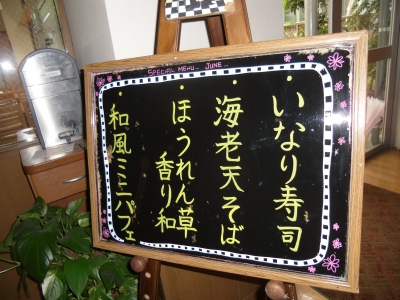 SPECIAL MENU... JUNE...
・いなり寿司
・海老天そば
・ほうれん草
香り和
・和風ミニパフェ